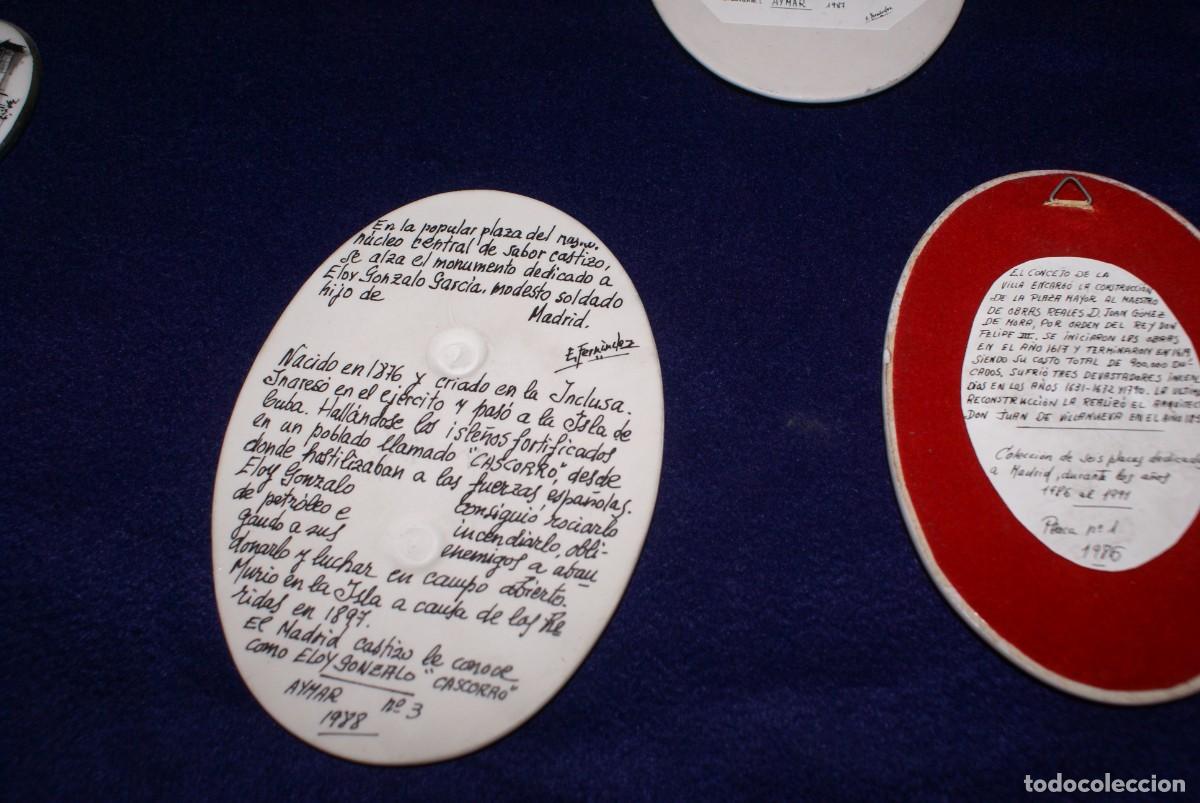 AYMAR 1987
En la popular plaza del
núcleo central de sabor castizo,
se alza el monumento dedicado a
Eloy Gonzalo García, modesto soldado
hijo de Madrid.
E. Fernández
Nacido en 1876 y criado en la Inclusa.
Ingresó en el ejército y pasó a la Isla de
Cuba. Hallándose los isleños fortificados
en un poblado llamado "CASCORRO", desde
donde hostilizaban a las fuerzas españolas.
Eloy Gonzalo consiguió rociarlo
de petróleo e incendiarlo, obli-
gando a sus enemigos a aban
donarlo y luchar en campo abierto.
Murio en la Isla a causa de las he
ridas en 1897.
El Madrid castizo le conoce
como ELOY GONZALO "CASCORRO"
AYMAR nº 3
1988
EL CONCEJO DE LA
VILLA ENCARGÓ LA CONSTRUCCIÓN
DE LA PLAZA MAYOR AL MAESTRO
DE OBRAS REALES D. JUAN GÓMEZ
DE MORA, POR ORDEN DEL REY DON
FELIPE III. SE INICIARON LAS OBRAS
EN EL AÑO 1617 Y TERMINARON EN 1619
SIENDO SU COSTO TOTAL DE 900.000 DU-
CADOS, SUFRIÓ TRES DEVASTADORES INCEN
DIOS EN LOS AÑOS 1631-1672 Y 1790. LA ULTIMA
RECONSTRUCCIÓN LA REALIZÓ EL ARQUITEC
DON JUAN DE VILLANUEVA EN EL AÑO
Colección de seis placas dedicada
a Madrid, durante los años
1986 al 1991
Placa nº 1
1986
todocoleccion